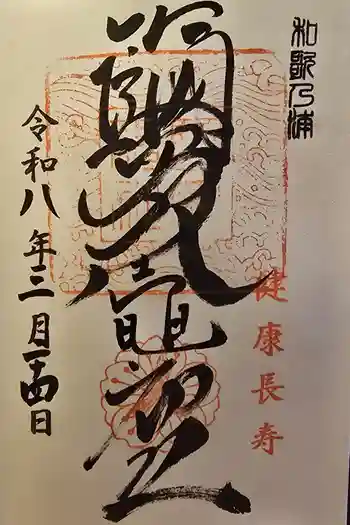 和歌乃浦
健康長寿
鹽竈神社
令和八年三月十四日